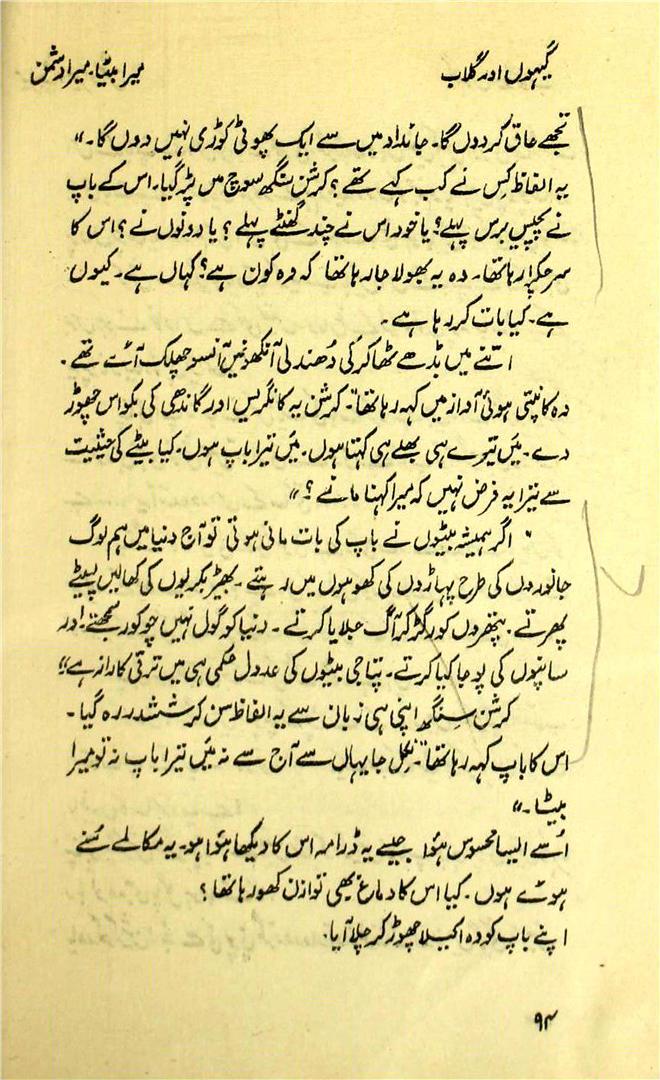 گیہوں اور گلاب
میرا بیٹا۔ میرا دشمن
تجھے عاق کر دوں گا۔ جائداد میں سے ایک پھوٹی کوڑی نہیں دوں گا۔"
یہ الفاظ کس نے کب کہے تھے؟ کرشن سنگھ سوچ میں پڑ گیا۔ اس کے باپ
نے پچیس برس پہلے؟ یا خود اس نے چند گھنٹے پہلے؟ یا دونوں نے؟ اس کا
سر چکرا رہا تھا۔ وہ یہ بھولا جا رہا تھا کہ وہ کون ہے؟ کہاں ہے۔ کیوں
ہے۔ کیا بات کر رہا ہے۔
اتنے میں بڈھے ٹھاکر کی دُھندلی آنکھوں میں آنسو چھلک آئے تھے۔
وہ کانپتی ہوئی آواز میں کہہ رہا تھا"۔ کرشن یہ کانگریس اور گاندھی کی بکواس چھوڑ
دے۔ میں تیرے ہی بھلے ہی کہتا ہوں۔ میں تیرا باپ ہوں۔ کیا بیٹے کی حیثیت
سے تیرا یہ فرض نہیں کہ میرا کہنا مانے؟"
" اگر ہمیشہ بیٹوں نے باپ کی بات مانی ہوتی تو آج دنیا میں ہم لوگ
جانوروں کی طرح پہاڑوں کی کھوہوں میں رہتے۔ بھیڑ بکریوں کی کھالیں لپیٹے
پھرتے۔ پتھروں کو رگڑ کر آگ جلایا کرتے۔ دنیا کو گول نہیں چوکور سمجھتے۔ اور
سانپوں کی پوجا کیا کرتے۔ پتاجی بیٹوں کی عدول حکمی ہی میں ترقی کا راز ہے"
کرشن سنگھ اپنی ہی زبان سے یہ الفاظ سن کر ششدر رہ گیا۔
اس کا باپ کہہ رہا تھا"۔ نکل جا یہاں سے آج سے نہ میں تیرا باپ نہ تو میرا
بیٹا۔"
اُسے ایسا محسوس ہوا جیسے یہ ڈرامہ اس کا دیکھا ہوا ہو۔ یہ مکالمے سُنے
ہوئے ہوں۔ کیا اس کا دماغ بھی توازن کھو رہا تھا؟
اپنے باپ کو وہ اکیلا چھوڑ کر چلا آیا۔
۹۴